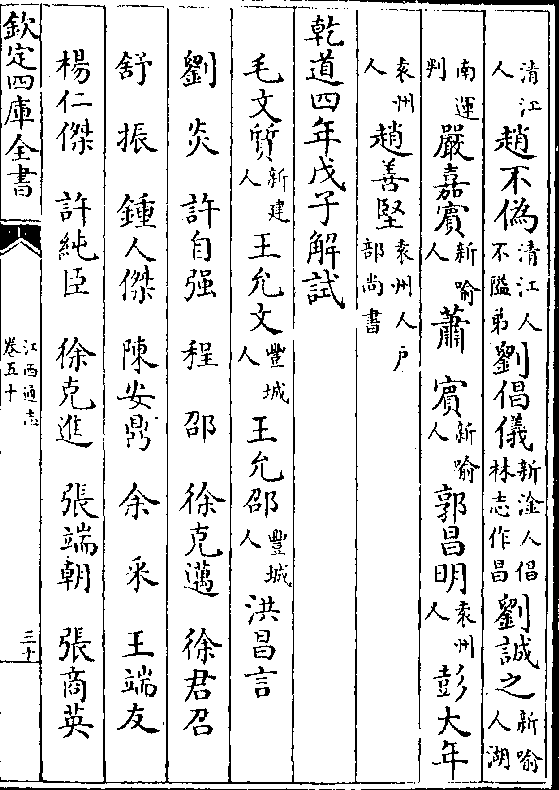 清江人趙不偽清江人不隘弟劉倡儀新淦人倡林志作昌劉誠之新喻人湖
南運判嚴嘉賓新喻人蕭賓新喻人郭昌明袁州人彭大年
袁州人趙善堅袁州人戶部尚書
乾道四年戊子解試
毛文質新建人王允文豐城人王允邵豐城人洪昌言
劉炎 許自强 程邵 徐克邁 徐君召
舒振 鍾人傑 陳安鼎 余釆 王端友
楊仁傑 許純臣 徐克進 張端朝 張商英
欽定四庫全書
江西通志
卷五十
三十